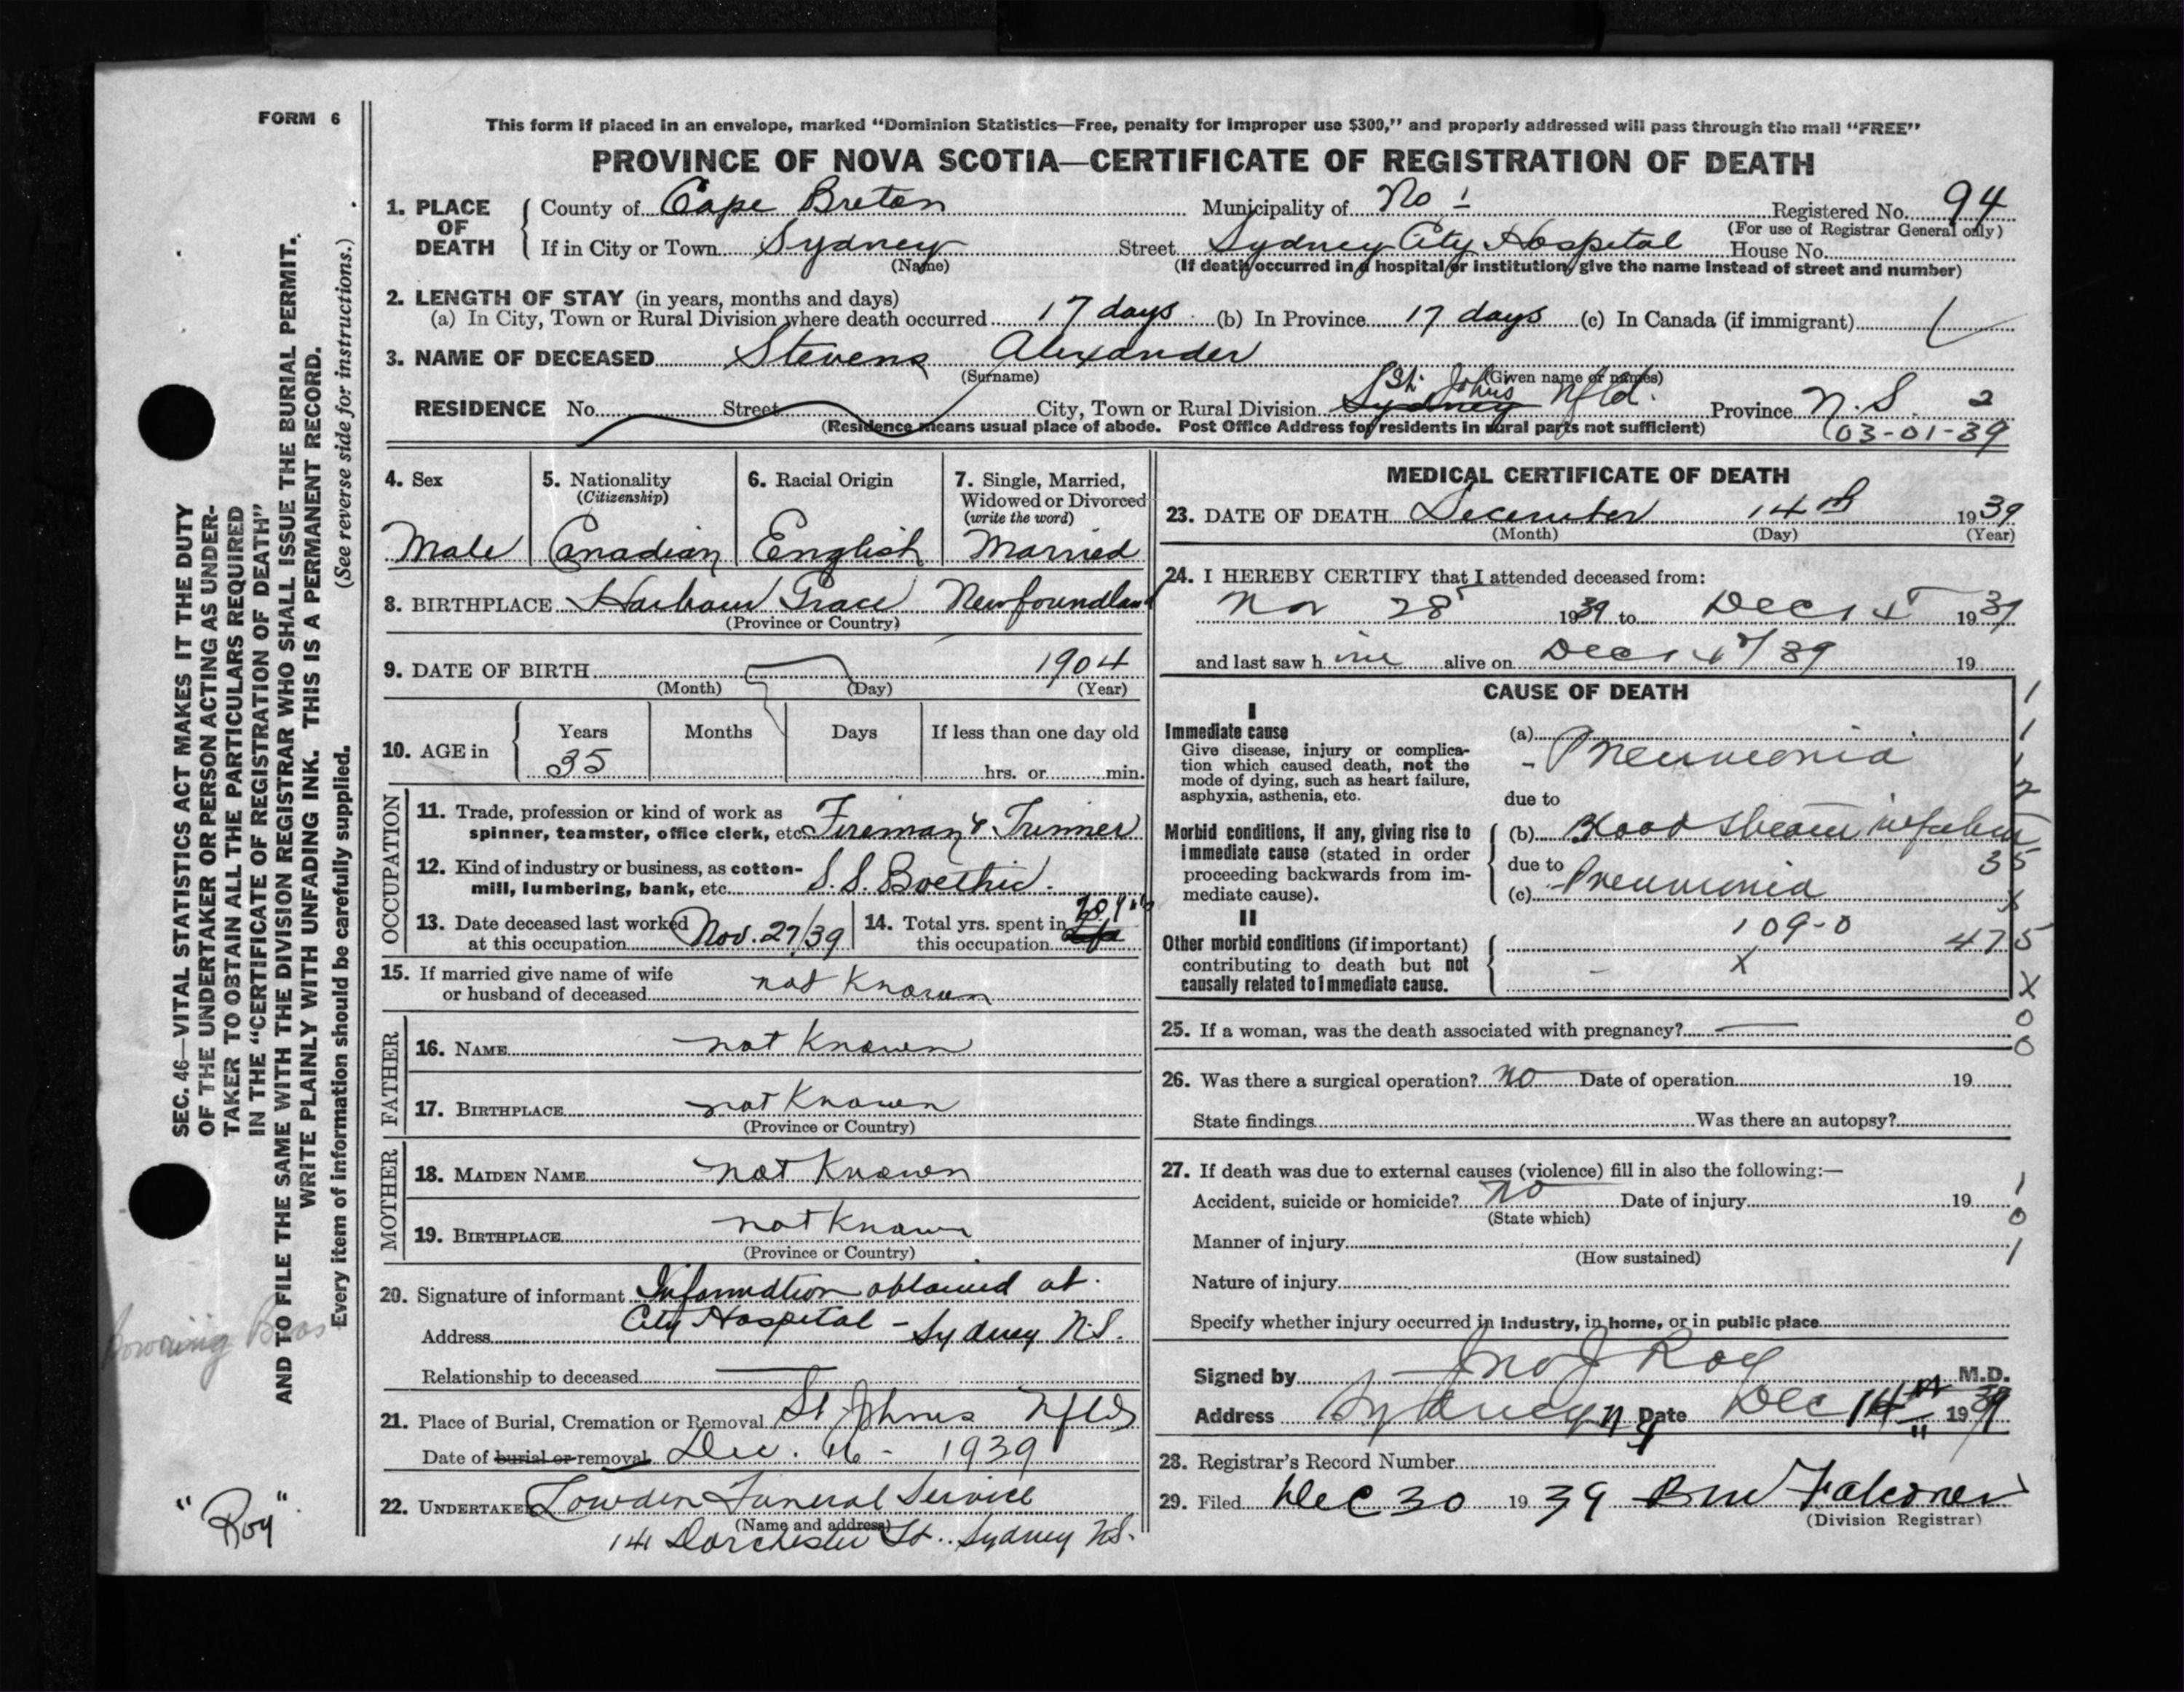 FORM 6
This form if placed in an envelope, marked “Dominion Statistics—Free, penalty for improper use $300,” and properly addressed will pass through the mail “FREE”
PROVINCE OF NOVA SCOTIA—CERTIFICATE OF REGISTRATION OF DEATH
1. PLACE OF DEATH County of Cape Breton Municipality of No 1 Registered No. 94
(For use of Registrar General only)
If in City or Town Sydney Street Sydney City Hospital House No.
(Name) (If death occurred in a hospital or institution, give the name instead of street and number)
2. LENGTH OF STAY (in years, months and days)
(a) In City, Town or Rural Division where death occurred 17 days (b) In Province 17 days (c) In Canada (if immigrant)
3. NAME OF DECEASED Stevens Alexander
(Surname) (Given name or names)
St. Johns Nfld.
RESIDENCE No. Street City, Town or Rural Division Sydney Province N.S. 2
(Residence means usual place of abode. Post Office Address for residents in rural parts not sufficient) 03-01-39
4. Sex 5. Nationality (Citizenship) 6. Racial Origin 7. Single, Married, Widowed or Divorced (write the word)
Male Canadian English Married
8. BIRTHPLACE Harbour Grace Newfoundland
(Province or Country)
9. DATE OF BIRTH 1904
(Month) (Day) (Year)
10. AGE in Years Months Days If less than one day old
35 hrs. or min.
OCCUPATION
11. Trade, profession or kind of work as
spinner, teamster, office clerk, etc. Fireman & Trimmer
12. Kind of industry or business, as cotton-
mill, lumbering, bank, etc. S.S. Boethic.
13. Date deceased last worked at this occupation Nov. 27/39 14. Total yrs. spent in this occupation
15. If married give name of wife
or husband of deceased not Known
FATHER
16. NAME not Known
17. BIRTHPLACE not Known
(Province or Country)
MOTHER
18. MAIDEN NAME not Known
19. BIRTHPLACE not Known
(Province or Country)
20. Signature of informant Information obtained at
Address City Hospital - Sydney N.S.
Relationship to deceased
21. Place of Burial, Cremation or Removal St Johns Nfld
Date of burial or removal Dec. 16 - 1939
22. UNDERTAKER Lowden Funeral Service
(Name and address)
141 Dorchester St.. Sydney N.S.
MEDICAL CERTIFICATE OF DEATH
23. DATE OF DEATH December 14th 1939
(Month) (Day) (Year)
24. I HEREBY CERTIFY that I attended deceased from:
Nov 28 1939 to Dec 14 1939
and last saw him alive on Dec 14/39 19
CAUSE OF DEATH
I
Immediate cause
Give disease, injury or complica-
tion which caused death, not the
mode of dying, such as heart failure,
asphyxia, asthenia, etc.
(a) Pneumonia
due to
Morbid conditions, if any, giving rise to
immediate cause (stated in order
proceeding backwards from im-
mediate cause).
(b) Blood stream infection
due to 35
(c) Pneumonia
II
109-0
Other morbid conditions (if important)
contributing to death but not
causally related to immediate cause.
475
X
25. If a woman, was the death associated with pregnancy?
26. Was there a surgical operation? no Date of operation 19
State findings Was there an autopsy?
27. If death was due to external causes (violence) fill in also the following:—
Accident, suicide or homicide? no Date of injury 19
(State which)
Manner of injury
(How sustained)
Nature of injury
Specify whether injury occurred in industry, in home, or in public place
Signed by Jno J Roy M.D.
Address Sydney N S Date Dec 14th 1939
28. Registrar's Record Number
29. Filed Dec 30 1939 Falconer
(Division Registrar)
SEC. 46—VITAL STATISTICS ACT MAKES IT THE DUTY
OF THE UNDERTAKER OR PERSON ACTING AS UNDER-
TAKER TO OBTAIN ALL THE PARTICULARS REQUIRED
IN THE “CERTIFICATE OF REGISTRATION OF DEATH”
AND TO FILE THE SAME WITH THE DIVISION REGISTRAR WHO SHALL ISSUE THE BURIAL PERMIT.
WRITE PLAINLY WITH UNFADING INK. THIS IS A PERMANENT RECORD.
Every item of information should be carefully supplied. (See reverse side for instructions.)
"Roy"